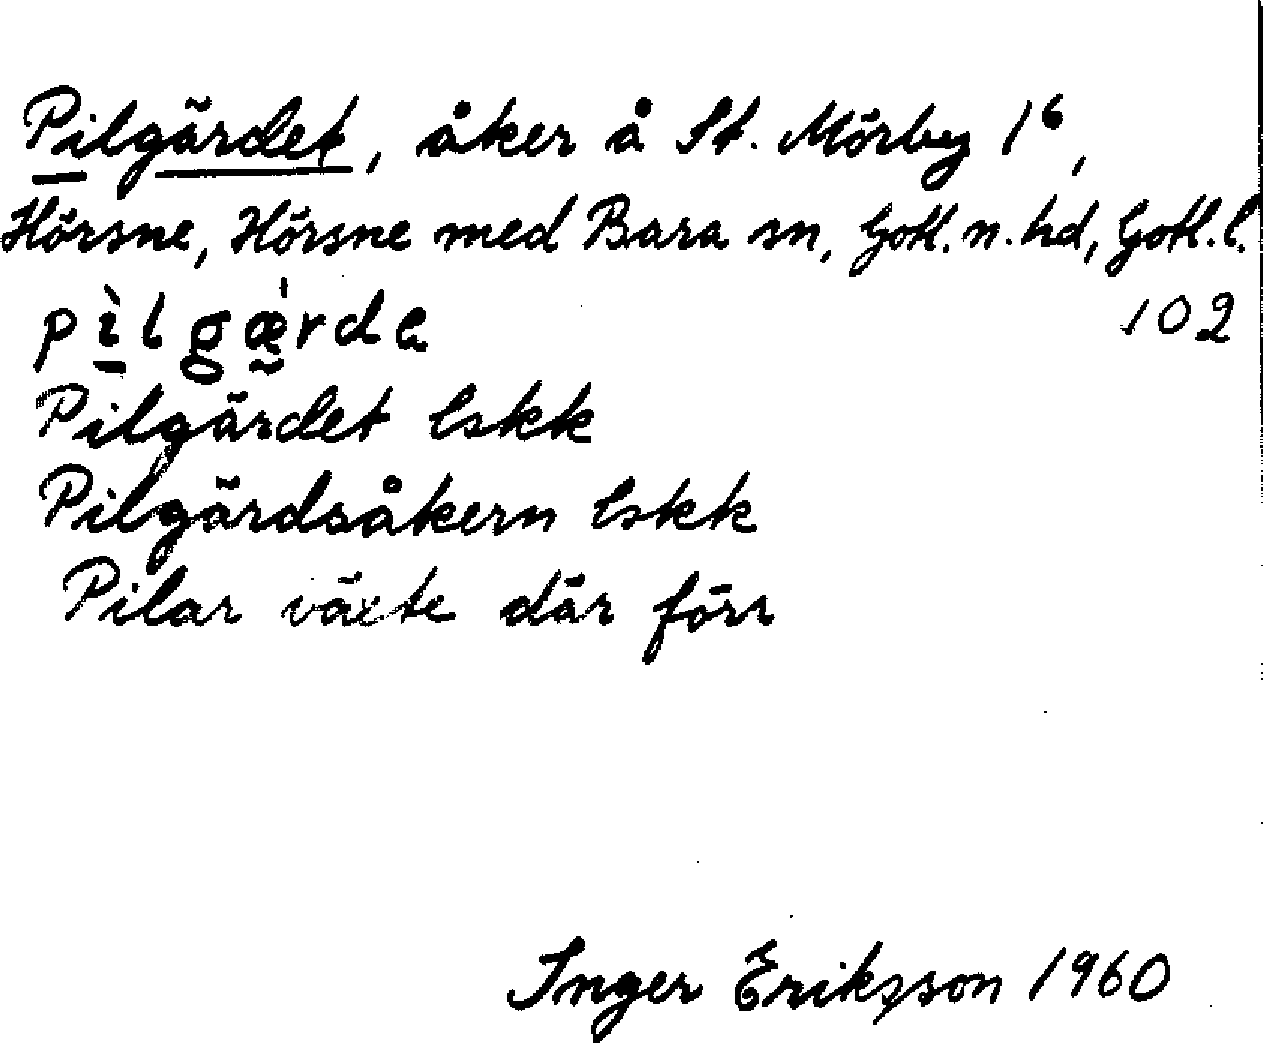 Pilgärdet, åker å St. Mörby 1⁶,
Hörsne, Hörsne med Bara sn, Gotl. n. hd, Gotl. l.
pìlgǽrda 102
Pilgärdet lskk
Pilgärdsåkern lskk
Pilar växte där förr
Inger Eriksson 1960